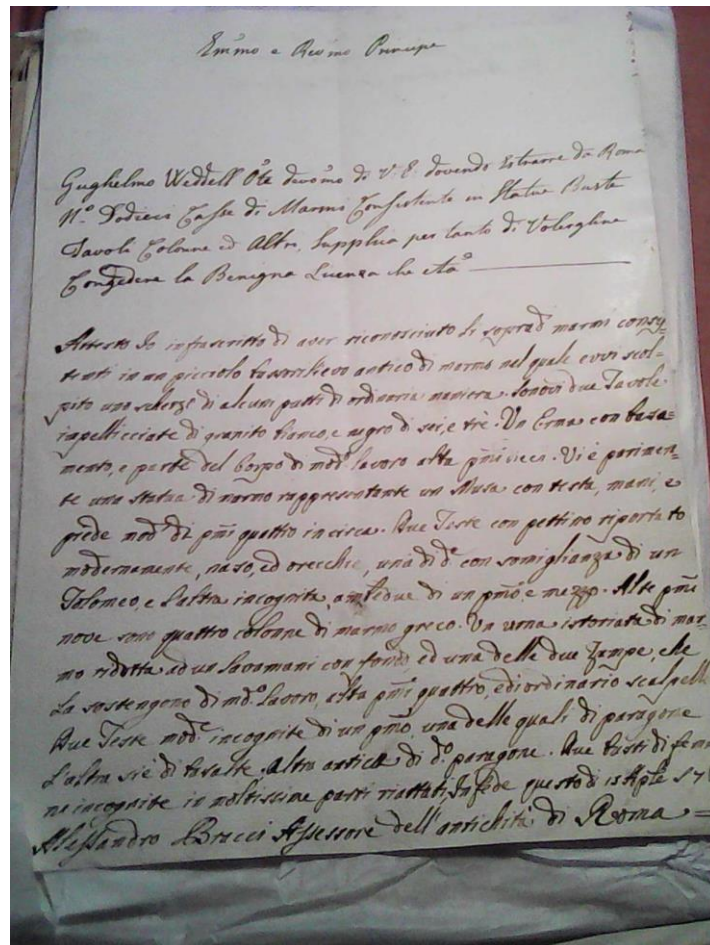 Em̃mo e Reṽmo Principe
Guglielmo Weddell Ore devomo di V. E. dovendo Estrarre da Roma
N.° Dodieci Casse di Marmi Consistente in Statue Buste
Tavoli Colonne ed Altro, Supplica per tanto di Volergline
Congedere la Benigna Licenza che
Attesto Io infrascritto di aver riconosciuto li soprad.i marmi consis=
tenti in un picciolo bassorilievo antico di marmo nel quale evvi scol=
pito uno scherzi di alcuni putti di ordinaria maniera. Sonovi due Tavole
impellicciate di granito bianco, e negro di sei, e trè. Un Erma con basa=
mento, e parte del Corpo di mod.° lavoro alta pmi Vi è parimen=
te una statua di marmo rappresentante un Musa con testa, mani, e
piede mod.i di pmi quattro in circa. Due Teste con pettino riportato
modernamente, naso, ed orecchie, una di d.e con somiglianza di un
Tolomeo, e l'altra incognita, ambedue di un pmo, e mezzo. Alte pmi
nove sono quattro colonne di marmo greco. Un urna istoriata di mar=
mo ridotta ad un lavamani con fondo ed una delle due zampe, che
la sostengono di md.° lavoro, alta pmi quattro, e di ordinario scalpell
Due Teste mod.e incognite di un pmo, una delle quali di paragone
l'altra si è di basalte. Altra antica di d.° paragone. Due Busti di fem
ne incognite in moltissime parti riattati. In fede questo dì 17
Alessandro Bracci Assessore dell'antichità di Roma =